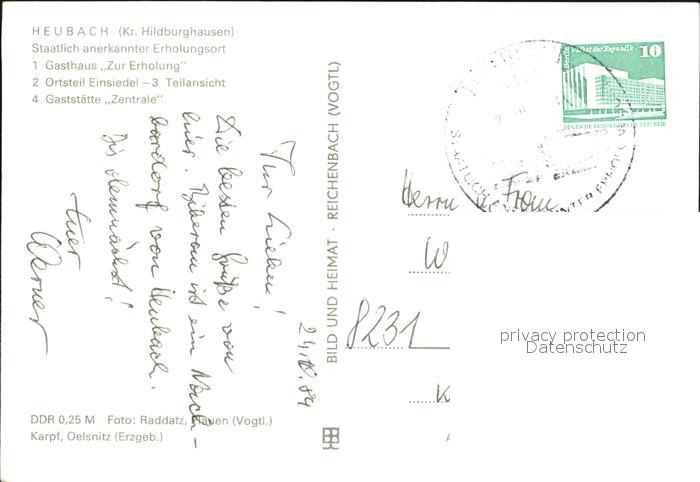 HEUBACH (Kr. Hildburghausen)
Staatlich anerkannter Erholungsort
1 Gasthaus „Zur Erholung”
2 Ortsteil Einsiedel – 3 Teilansicht
4 Gaststätte „Zentrale”
Ihr Lieben!
Die besten Grüße von
hier. Biberau ist ein Nach-
bardorf von Heubach.
Bis demnächst!
Euer
Werner
24.10.84
DDR 0,25 M Foto: Raddatz, Plauen (Vogtl.)
Karpf, Oelsnitz (Erzgeb.)
BILD UND HEIMAT · REICHENBACH (VOGTL)
Berlin Palast der Republik 10
DEUTSCHE DEMOKRATISCHE REPUBLIK
STAATLICH
Herrn u. Frau
W
8231
K
privacy protection
Datenschutz